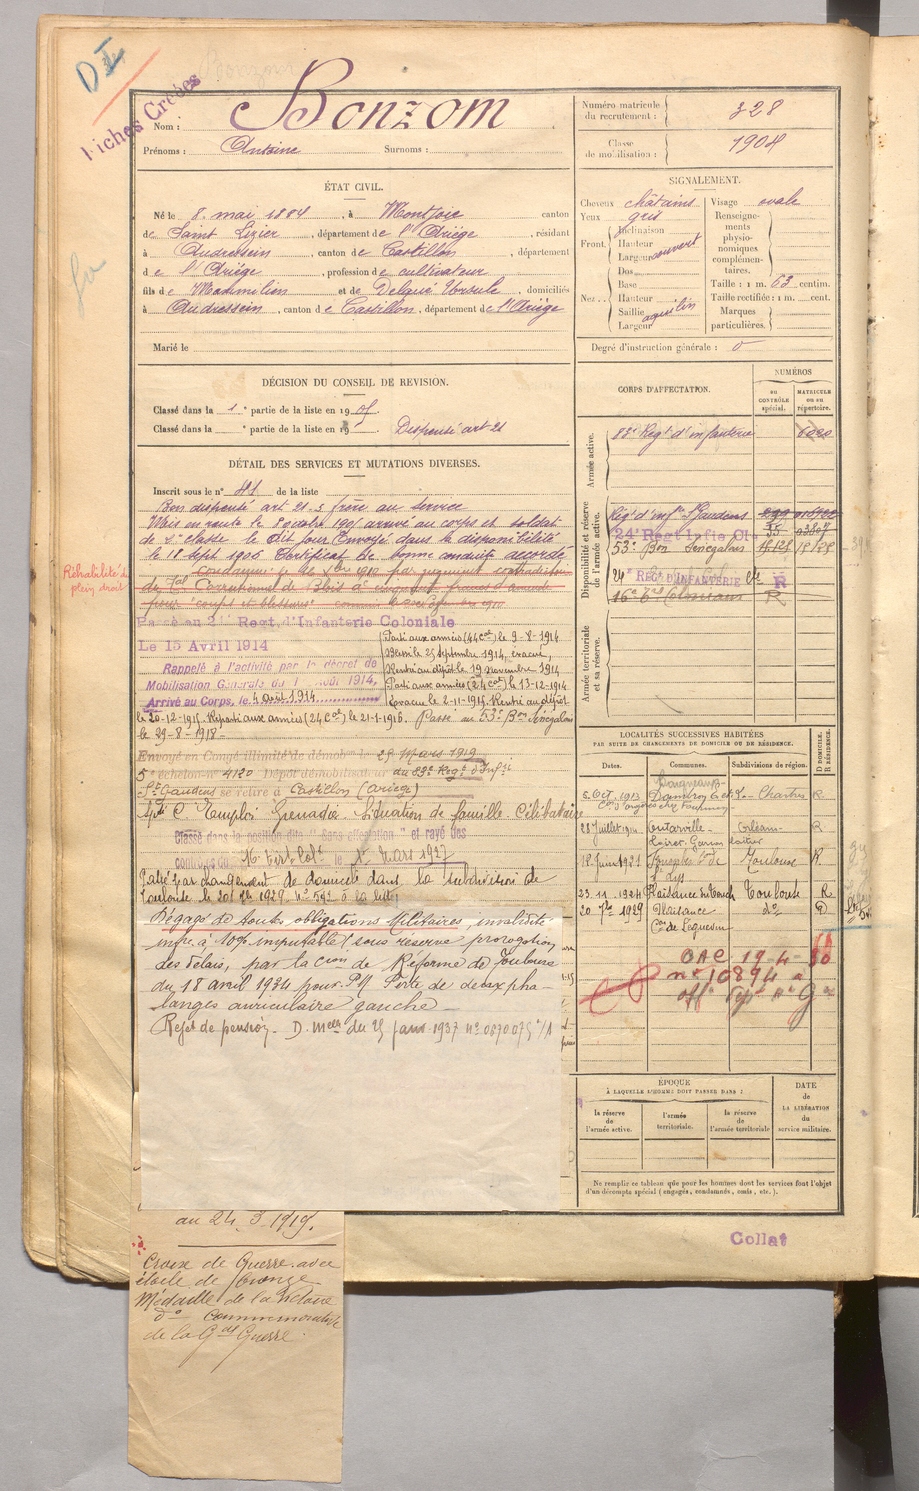 D I
Fiches Créées
Nom : Bonzom
Prénoms : Antoine Surnoms :
Numéro matricule du recrutement : 328
Classe de mobilisation : 1904
ÉTAT CIVIL.
Né le 8 mai 1884, à Montjoie canton
de Saint Lizier, département de l'Ariège, résidant
à Audressein, canton de Castillon, département
de l'Ariège, profession de cultivateur
fils de Maximilien et de Delqué Ursule, domiciliés
à Audressein, canton de Castillon, département de l'Ariège
Marié le
SIGNALEMENT.
Cheveux châtains
Yeux gris
Front. Inclinaison
Hauteur
Largeur
couvert
Nez. Dos
Base
Hauteur
Saillie
Largeur
aquilin
Visage ovale
Renseignements physionomiques complémentaires.
Taille : 1 m. 63 centim.
Taille rectifiée : 1 m. cent.
Marques particulières.
Degré d'instruction générale : 0
DÉCISION DU CONSEIL DE REVISION.
Classé dans la 1e partie de la liste en 1905
Classé dans la e partie de la liste en 19 Dispensé art 21
DÉTAIL DES SERVICES ET MUTATIONS DIVERSES.
Inscrit sous le n° 41 de la liste
Bon dispensé art 21-3 frère au service
Mis en route le 8 octobre 1905 arrivé au corps et soldat
de 2e classe le dit jour Envoyé dans la disponibilité
le 18 Sept 1906 Certificat de bonne conduite accordé
condamné le Xbre 1910 par jugement contradictoire
du Tal Correctionnel de Blois à cinquante francs d'amende
pour coups et blessures commis 1910
Réhabilité de plein droit
Passé au 24e Régt. d'Infanterie Coloniale
Le 15 Avril 1914
Rappelé à l'activité par le décret de
Mobilisation Générale du 1 Août 1914,
Arrivé au Corps, le 4 août 1914
Parti aux armées (44 Col) le 9-8-1914
Blessé le 25 septembre 1914, évacué,
Rentré au dépôt le 19 novembre 1914
Parti aux armées (24 Col) le 13-12-1914
Evacué le 2-11-1915. Rentré au dépôt
le 20-12-1915. Reparti aux armées (24 Col) le 21-1-1916. Passé au 53e Bon Sénégalais
le 29-8-1918
Envoyé en Congé illimité de démob le 25 Mars 1919
5e échelon n° 4120 Dépôt démobilisateur du 83e Régt d'Infie
St Gaudens se retire à Castillon (Ariège)
Apte C. Emploi Grenadier. Situation de famille. Célibataire
Classé dans la position dite "Sans affectation" et rayé des
contrôles du 16e Tirt Colx le 1er Mars 1927
Passé par changement de domicile dans la subdivision de
Toulouse, le 20 1929 n° 592 à la liste
Dégagé de toutes obligations Militaires, invalidité
infre à 10% imputable (sous réserve prorogation
des délais, par la Con de Réforme de Toulouse
du 18 avril 1934 pour P.M Perte de deux pha-
langes auriculaire gauche
Rejet de pension. D. Melle du 25 janv 1937 n° 0870075 /A
au 24. 3. 1919.
Croix de Guerre avec
étoile de bronze
Médaille de la victoire
do commemorative
de la Gde Guerre
CORPS D'AFFECTATION.
NUMÉROS
au CONTRÔLE spécial.
MATRICULE ou au répertoire.
Armée active.
83e Régt d'infanterie 6020
Disponibilité et réserve de l'armée active.
Régt d'infie St Gaudens
24e Régt Infie Cle
53e Bon Sénégalais
24e REGt D'INFANTERIE Cle R
16e Coloniaux R
Armée territoriale et sa réserve.
LOCALITÉS SUCCESSIVES HABITÉES
PAR SUITE DE CHANGEMENTS DE DOMICILE OU DE RÉSIDENCE.
Dates. Communes. Subdivisions de région. D DOMICILE. R RÉSIDENCE.
5 Oct. 1913 Chartres R
28 Juillet 1914 Outarville Orléans R
18 Juin 1921 Toulouse R
23.11.1924 Plaisance du Touch Toulouse R
20 7bre 1929 Plaisance do D
Con de Léguevin
n° 10894
ÉPOQUE
À LAQUELLE L'HOMME DOIT PASSER DANS :
la réserve de l'armée active.
l'armée territoriale.
la réserve de l'armée territoriale
DATE DE LA LIBÉRATION du service militaire.
Ne remplir ce tableau que pour les hommes dont les services font l'objet
d'un décompte spécial (engagés, condamnés, omis, etc.).
Collat